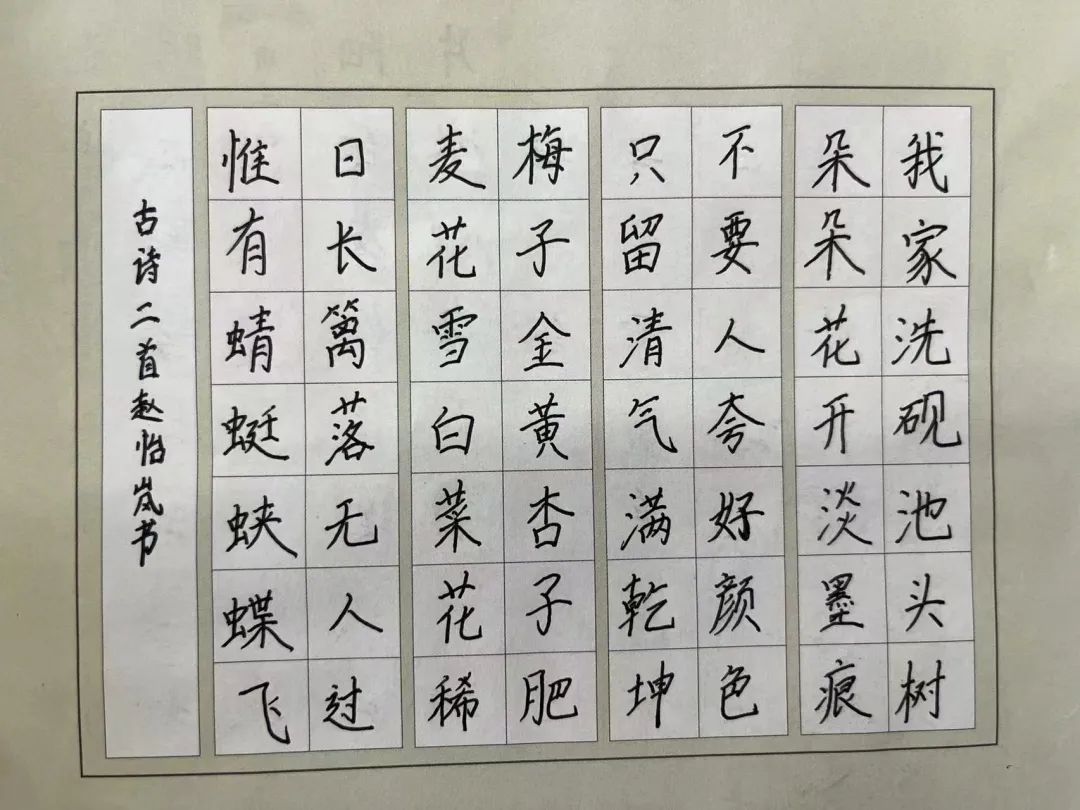 我家洗砚池头树
朵朵花开淡墨痕
不要人夸好颜色
只留清气满乾坤
梅子金黄杏子肥
麦花雪白菜花稀
日长篱落无人过
惟有蜻蜓蛱蝶飞
古诗二首赵怡岚书